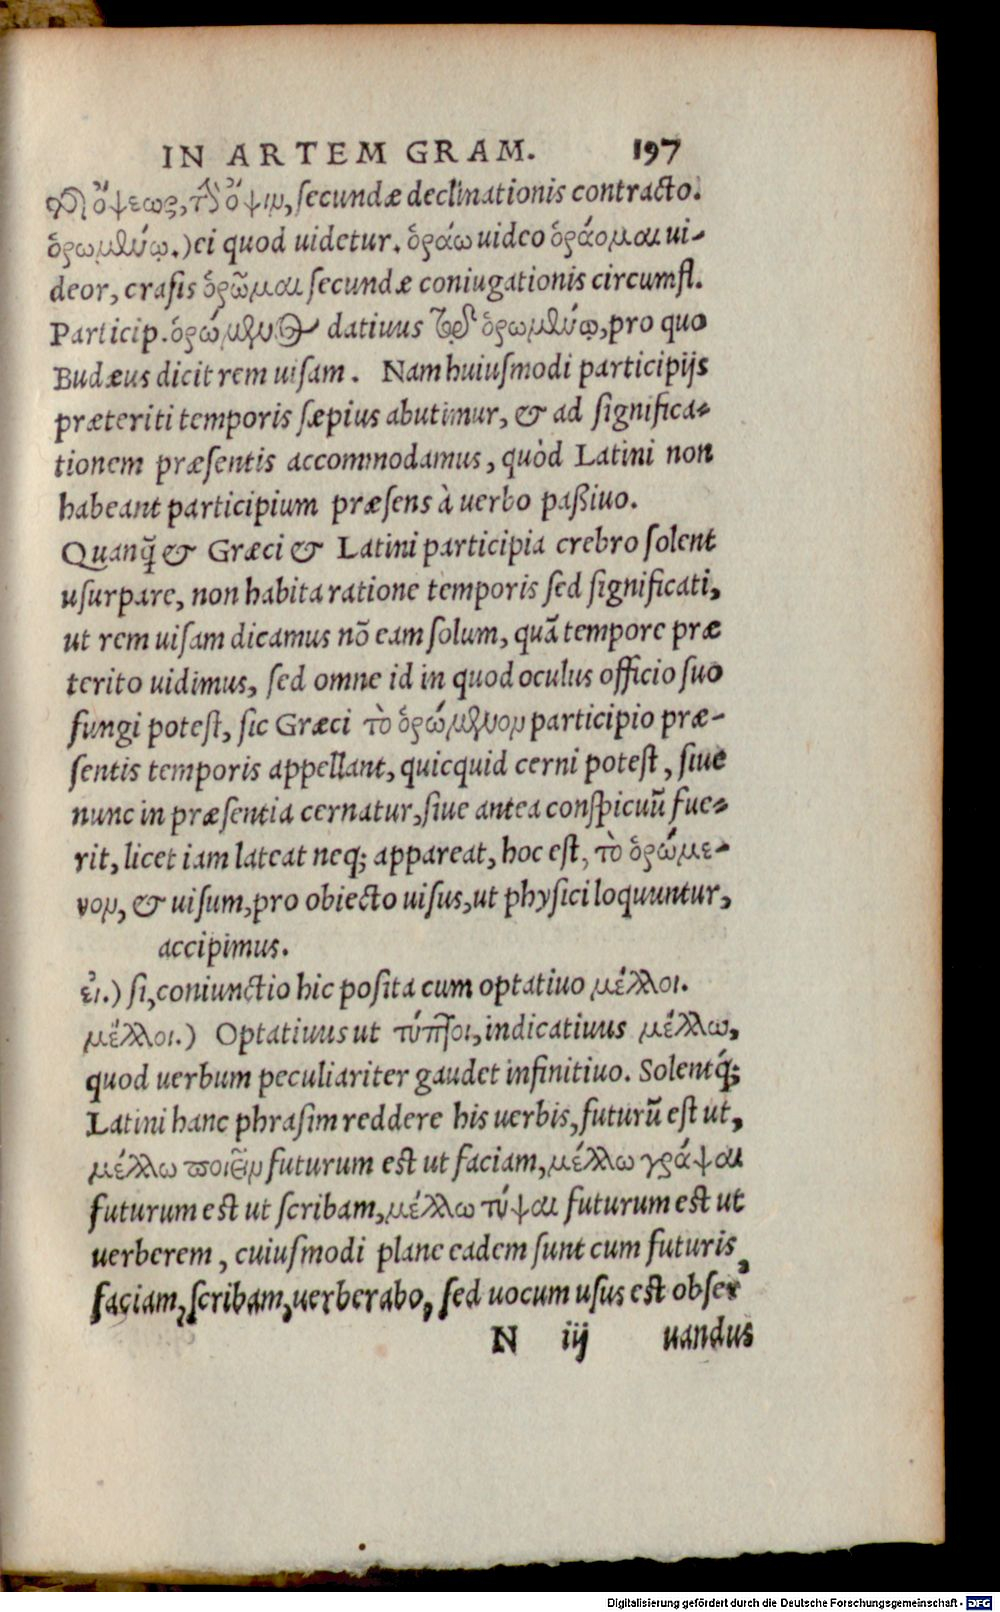 IN ARTEM GRAM. 197
τῆς ὄψεως, τὴν ὄψιν, secundæ declinationis contractorum.
ὁρωμένῳ.) ei quod uidetur. ὁράω uideo ὁράομαι ui-
deor, crasis ὁρῶμαι secundæ coniugationis circumfl.
Particip. ὁρώμενος datiuus τῷ ὁρωμένῳ, pro quo
Budæus dicit rem uisam. Nam huiusmodi participijs
præteriti temporis sæpius abutimur, & ad significa-
tionem præsentis accommodamus, quòd Latini non
habeant participium præsens à uerbo paßiuo.
Quanq̃ & Græci & Latini participia crebro solent
usurpare, non habita ratione temporis sed significati,
ut rem uisam dicamus nō eam solum, quā tempore præ
terito uidimus, sed omne id in quod oculus officio suo
fungi potest, sic Græci τὸ ὁρώμενον participio præ-
sentis temporis appellant, quicquid cerni potest, siue
nunc in præsentia cernatur, siue antea conspicuū fue-
rit, licet iam lateat neq; appareat, hoc est, τὸ ὁρώμε-
νον, & uisum, pro obiecto uisus, ut physici loquuntur,
accipimus.
εἰ.) si, coniunctio hic posita cum optatiuo μέλλοι.
μέλλοι.) Optatiuus ut τύπτοι, indicatiuus μέλλω,
quod uerbum peculiariter gaudet infinitiuo. Solentq́;
Latini hanc phrasim reddere his uerbis, futurū est ut,
μέλλω ποιεῖν futurum est ut faciam, μέλλω γράψαι
futurum est ut scribam, μέλλω τύψαι futurum est ut
uerberem, cuiusmodi plane eadem sunt cum futuris,
faciam, scribam, uerberabo, sed uocum usus est obser
N iij uandus
Digitalisierung gefördert durch die Deutsche Forschungsgemeinschaft - DFG